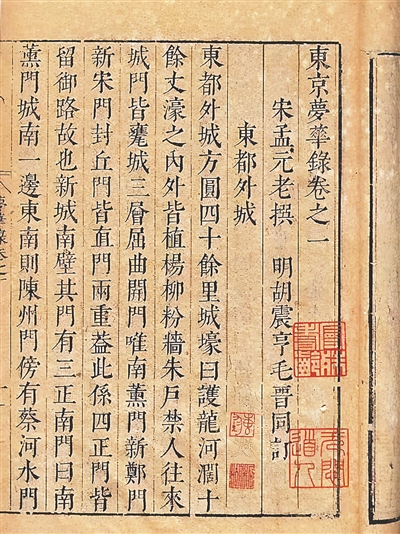 東京夢華錄卷之一
宋孟元老撰 明胡震亨毛晉同訂
東都外城
東都外城方圓四十餘里城壕曰護龍河濶十
餘丈濠之內外皆植楊柳粉墻朱戶禁人往來
城門皆甕城三層屈曲開門唯南薰門新鄭門
新宋門封丘門皆直門兩重蓋此係四正門皆
留御路故也新城南壁其門有三正南門曰南
薰門城南一邊東南則陳州門傍有蔡河水門